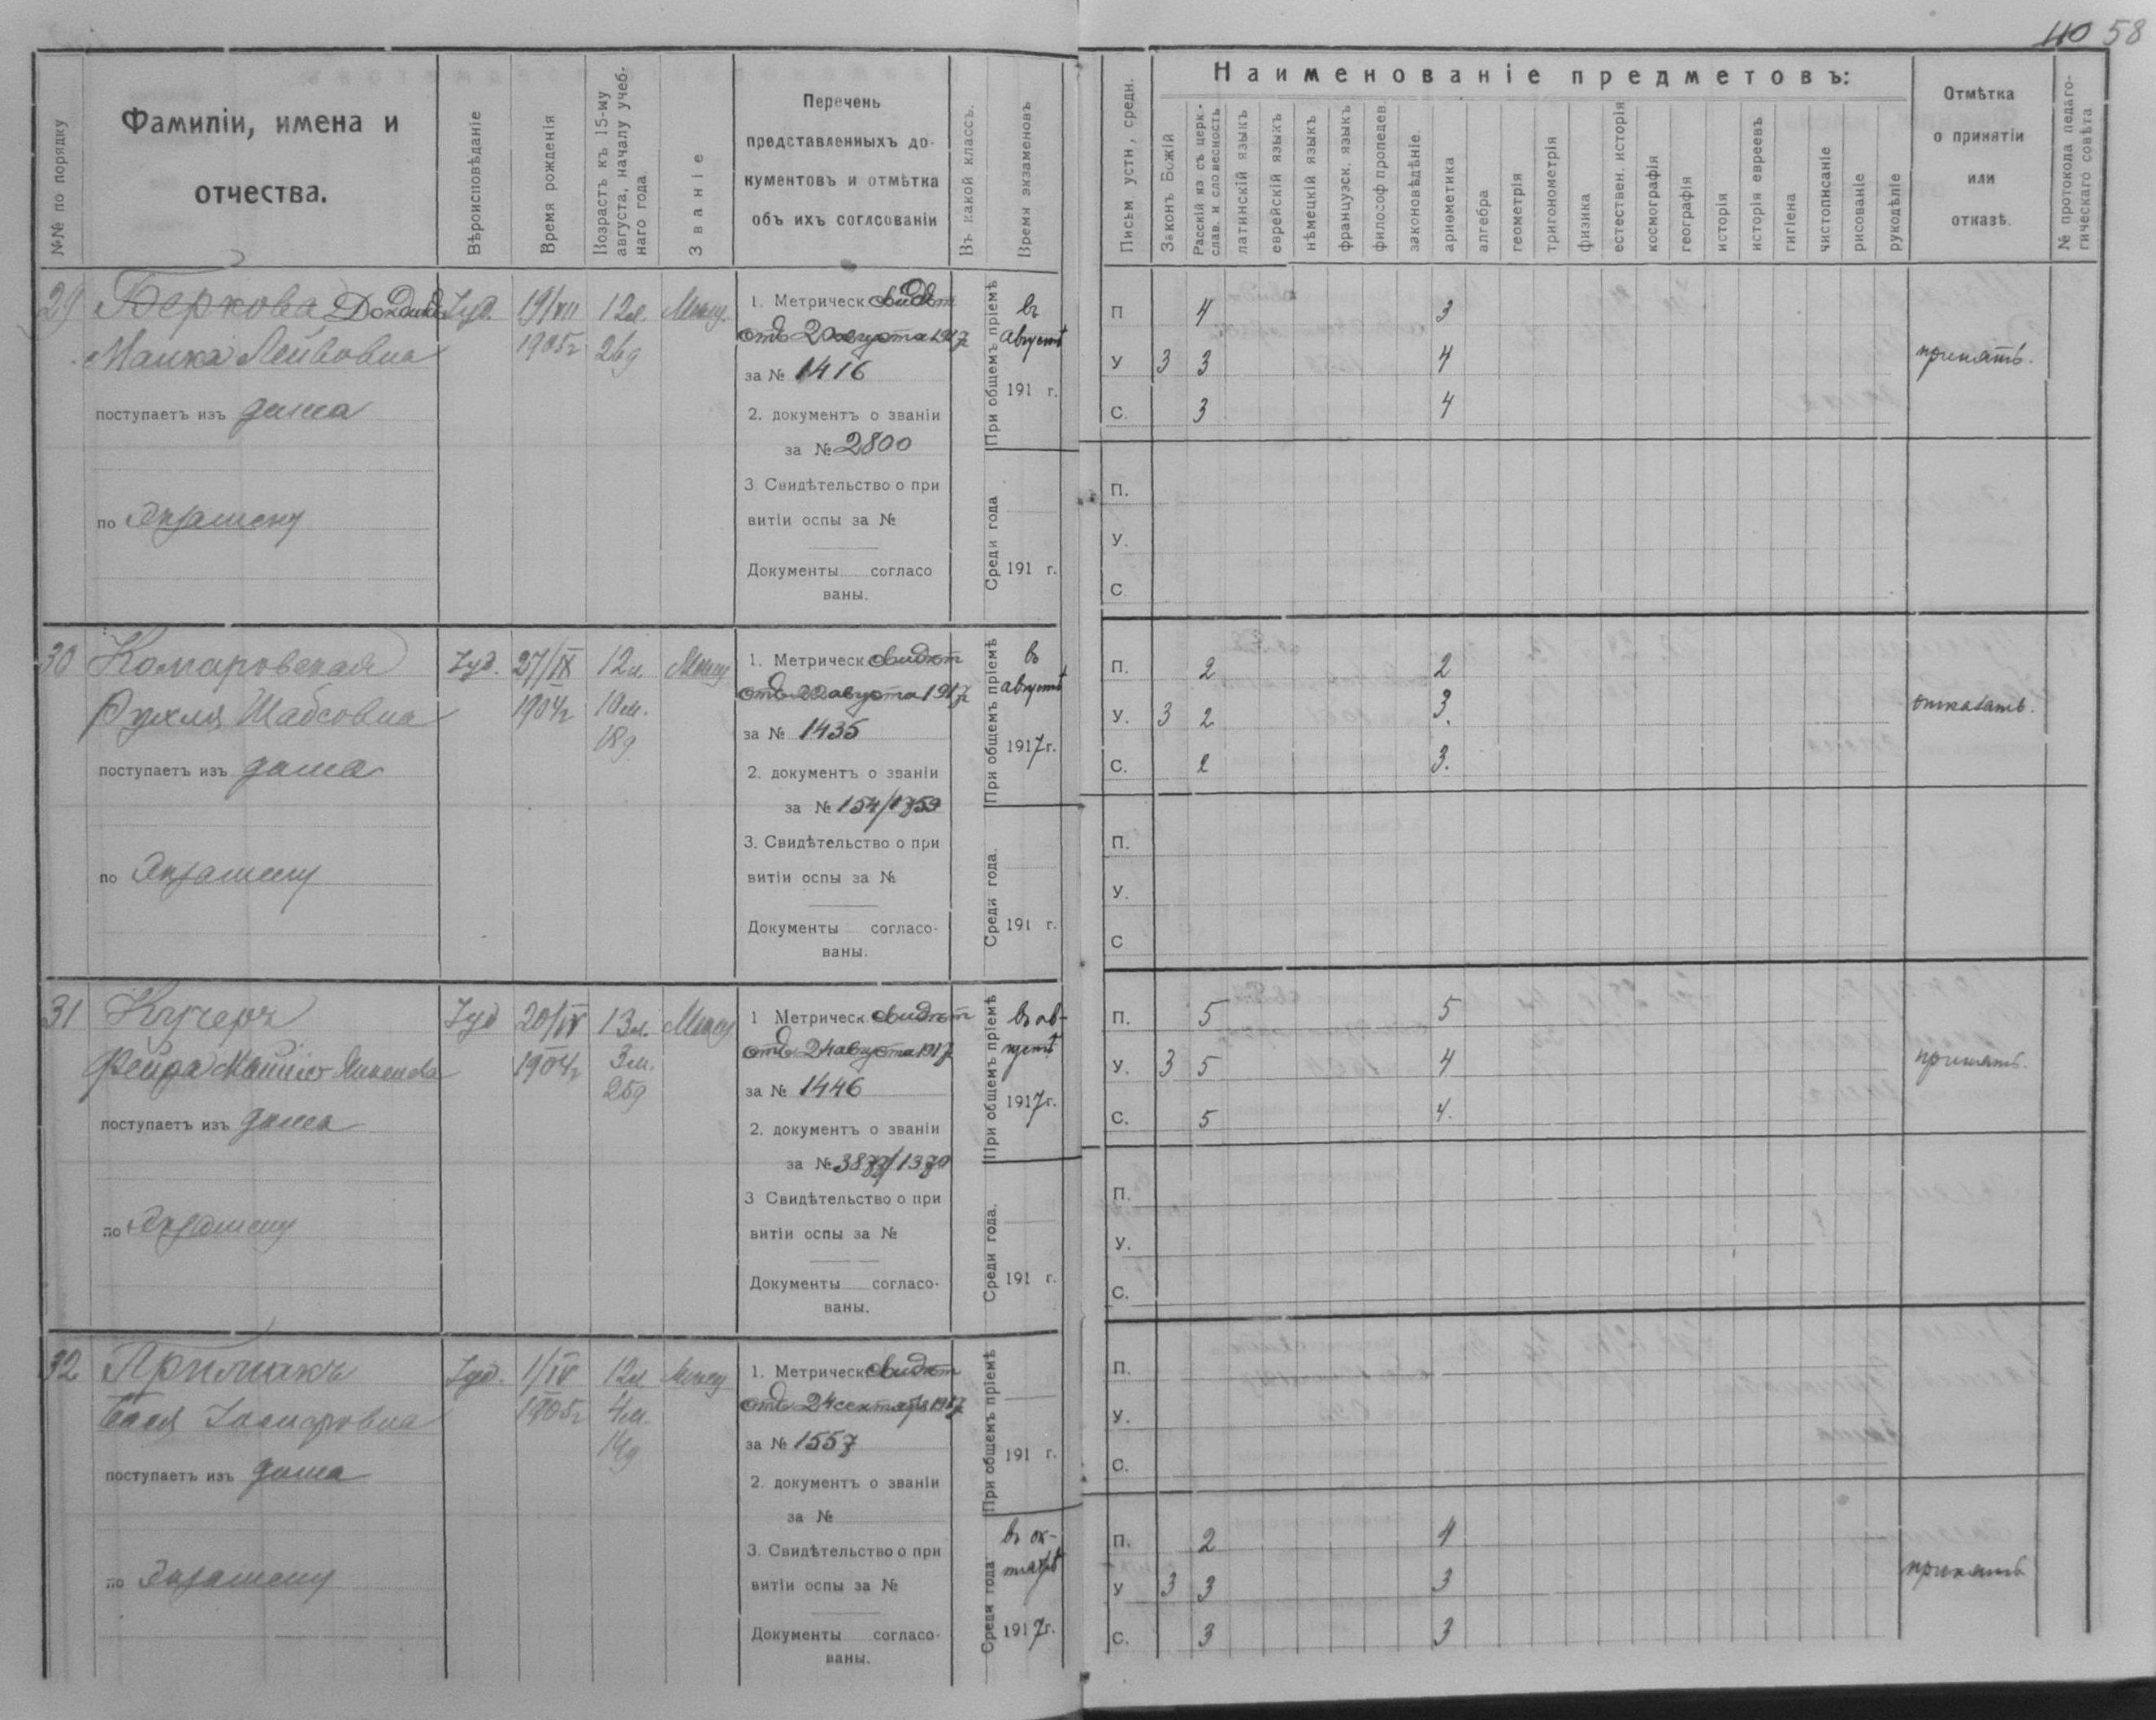 40 58
№№ по порядку
Фамиліи, имена и
отчества.
Вѣроисповѣданіе
Время рожденія
Возрастъ къ 15-му
августа, началу учеб-
наго года
Званіе
Перечень
представленныхъ до-
кументовъ и отмѣтка
объ ихъ согласованіи
Въ какой классъ.
Время экзаменовъ
Письм устн, средн.
Наименованіе предметовъ:
Законъ Божій
Русскій яз съ церк.-
слав. и словесность
латинскій языкъ
еврейскій языкъ
нѣмецкій языкъ
французск. языкъ
философ пропедев.
законовѣдѣніе
ариѳметика
алгебра
геометрія
тригонометрія
физика
естествен. исторія
космографія
географія
исторія
исторія евреевъ
гигіена
чистописаніе
рисованіе
рукодѣліе
Отмѣтка
о принятіи
или
отказѣ.
№ протокола педаго-
гическаго совѣта
29 Беркова Іуд 19/VII 12л. Мѣщ.
Манка Лейбовна 1905г 26д
поступаетъ изъ дома
по Экзамену
1. Метрическ свидѣт
отъ 20 августа 1917г
за № 1416
2. документъ о званіи
за № 2800
3. Свидѣтельство о при
витіи оспы за №
Документы согласо
ваны.
При общемъ пріемѣ
въ
августѣ
191 г.
Среди года
191 г.
П 4 3
У 3 3 4
С. 3 4
принять.
П.
У.
С
30 Комаровская Іуд. 27/IX 12л. Мѣщ
Рухля Шабсовна 1904г 10м.
18д
поступаетъ изъ дома
по Экзамену
1. Метрическ свидѣт
отъ 22 августа 1917г
за № 1435
2. документъ о званіи
за № 154/1759
3. Свидѣтельство о при
витіи оспы за №
Документы согласо-
ваны.
При общемъ пріемѣ
въ
августѣ
1917г.
Среди года.
191 г.
П. 2 2
У. 3 2 3.
С. 2 3.
отказать.
П.
У.
С
31 Кучеръ Іуд 20/IV 13л. Мѣщ
Фейга 1904г 3м.
25д
поступаетъ изъ дома
по Экзамену
1 Метрическ свидѣт
отъ 24 августа 1917
за № 1446
2. документъ о званіи
за № 3877/1370
3 Свидѣтельство о при
витіи оспы за №
Документы согласо-
ваны.
При общемъ пріемѣ
въ ав-
густѣ
1917г.
Среди года.
191 г.
П. 5 5
У. 3 5 4
С. 5 4.
принять.
П.
У.
С.
32 Примакъ Іуд. 1/IV 12л. Мѣщ
Бася 1905г 4м.
14д
поступаетъ изъ дома
по Экзамену
1. Метрическ свидѣт
отъ 24 сентября 1917
за № 1557
2. документъ о званіи
за №
3. Свидѣтельство о при
витіи оспы за №
Документы согласо-
ваны.
При общемъ пріемѣ
191 г.
Среди года
въ ок-
тябрѣ
1917г.
П.
У.
С.
П. 2 4
У 3 3 3
С. 3 3
принять